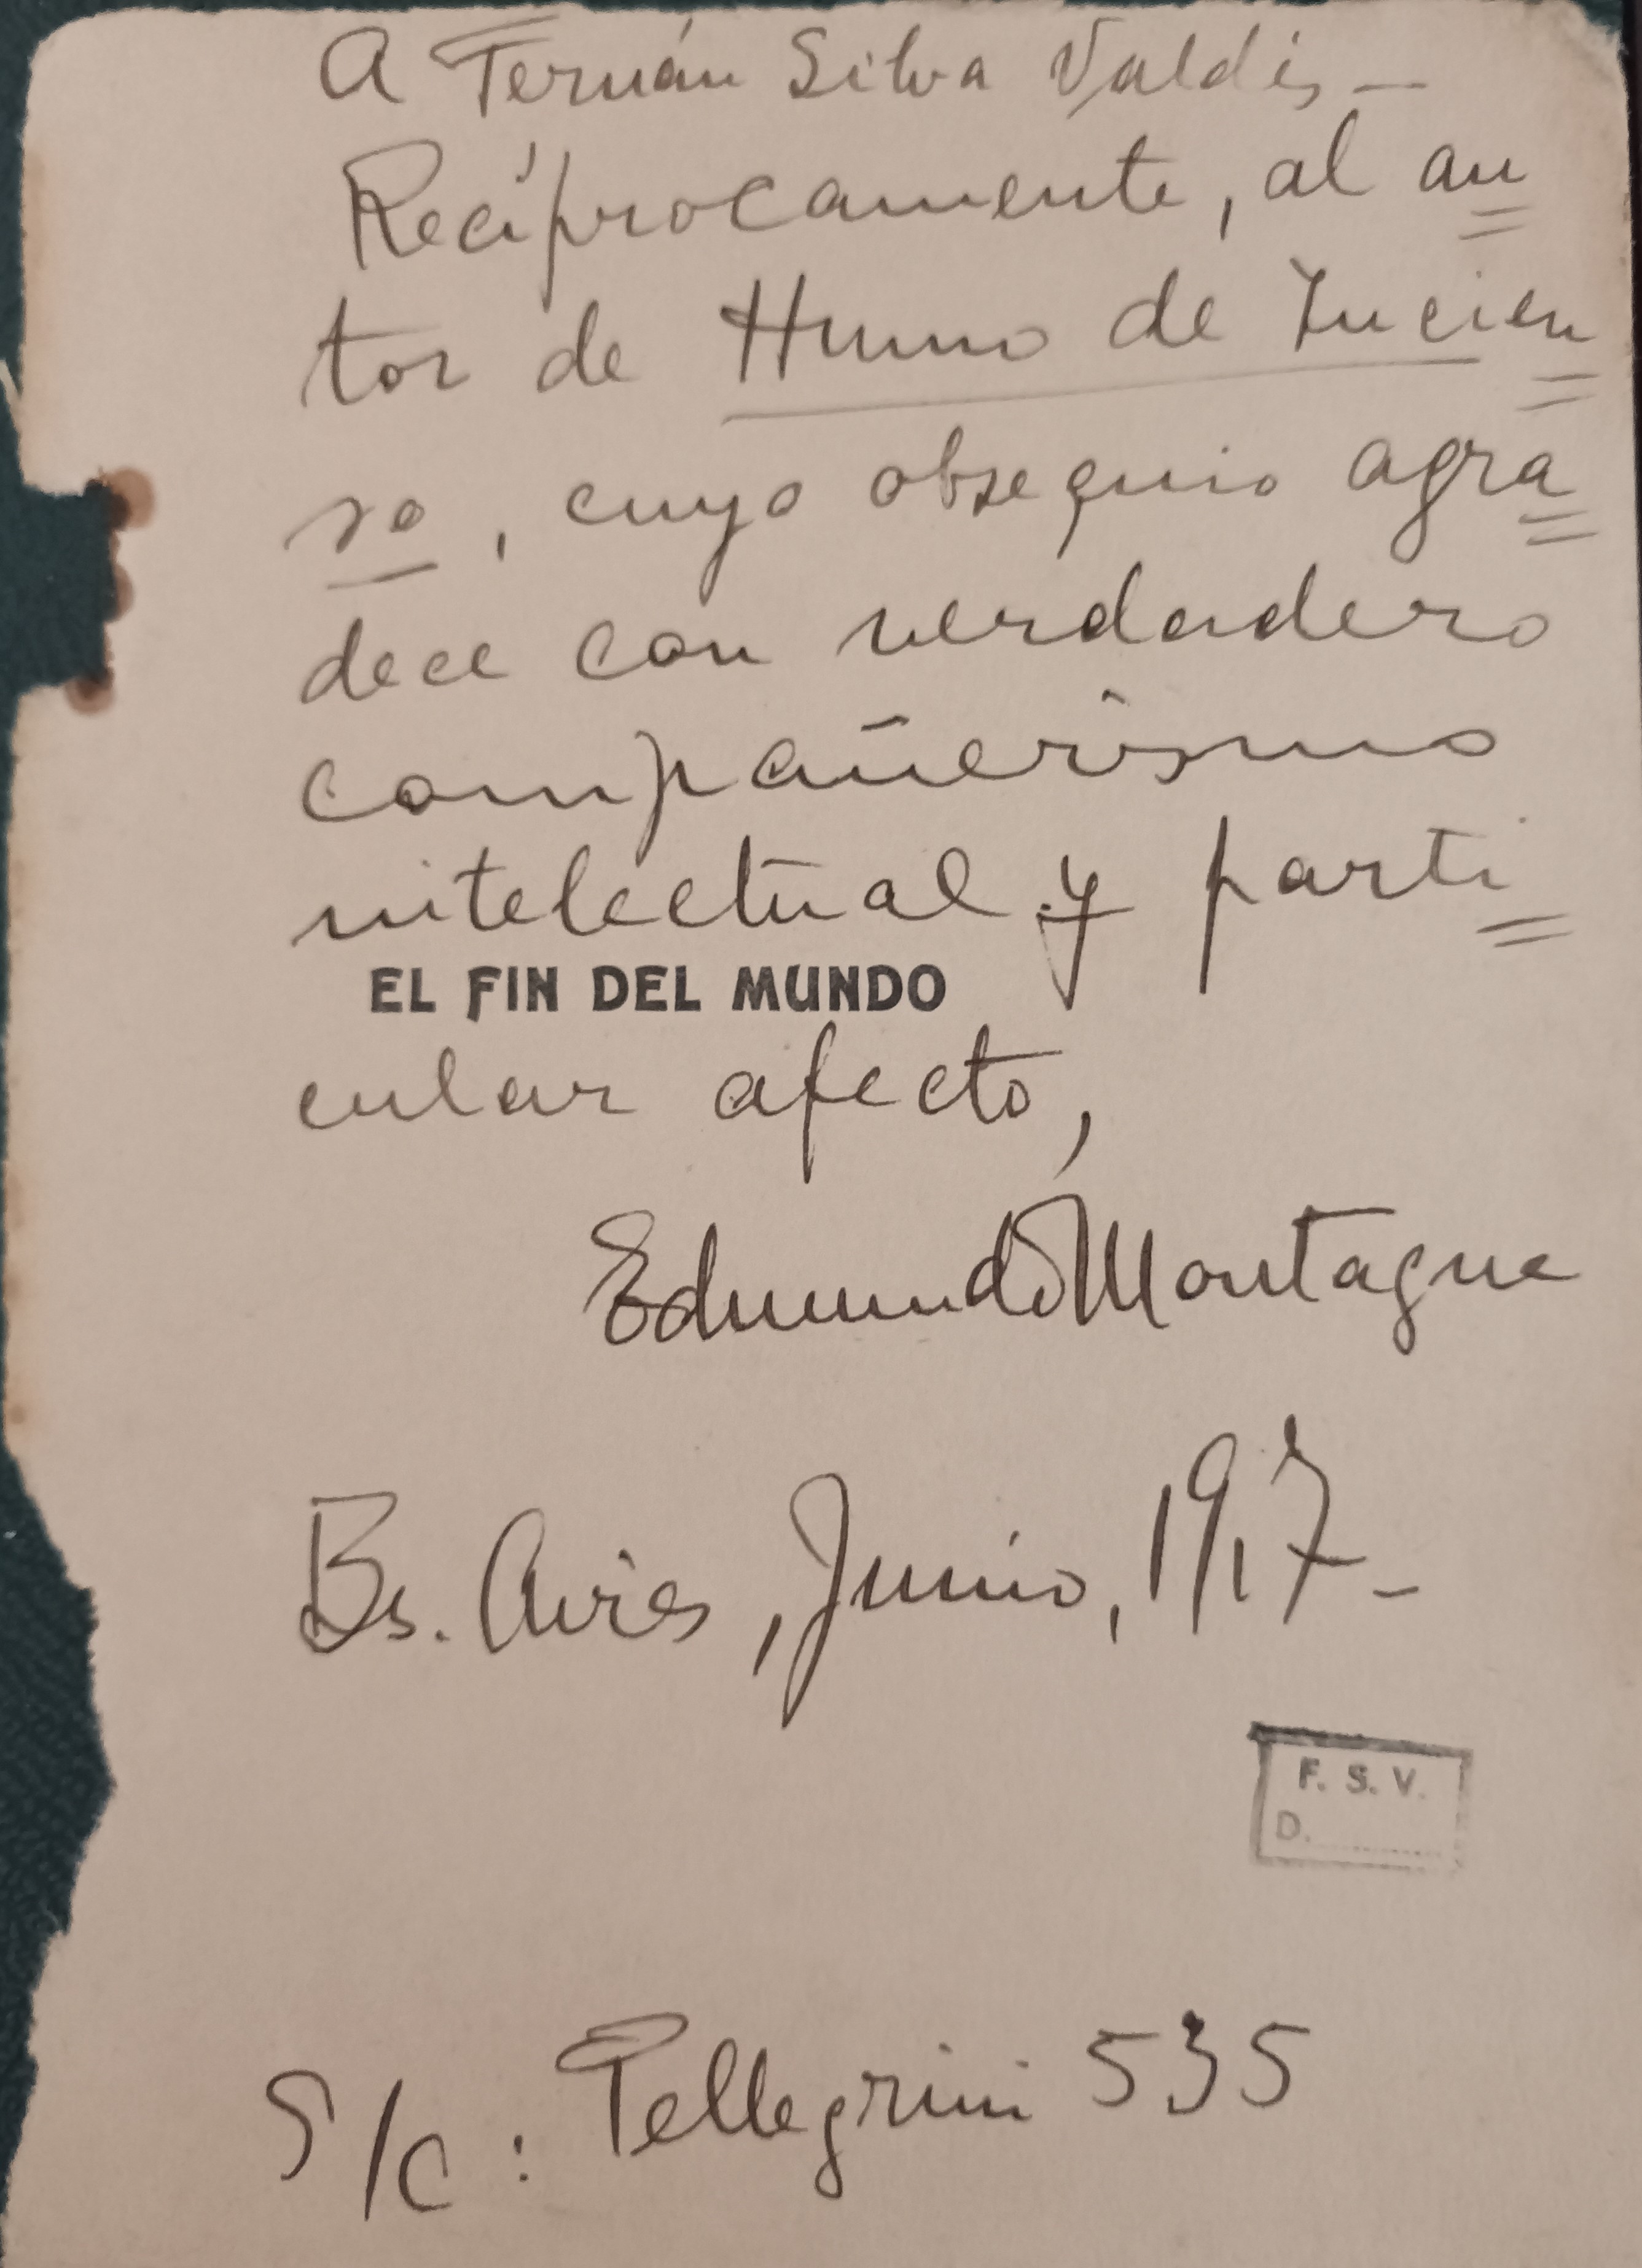 A Fernán Silva Valdés—
Recíprocamente, al au=
tor de Humo de Incien=
so, cuyo obsequio agra=
dece con verdadero
compañerismo
intelectual y parti=
EL FIN DEL MUNDO
cular afecto,
Edmundo Montagne
Bs. Aires, Junio, 1917-
F. S. V.
D.
S/C: Pellegrini 535